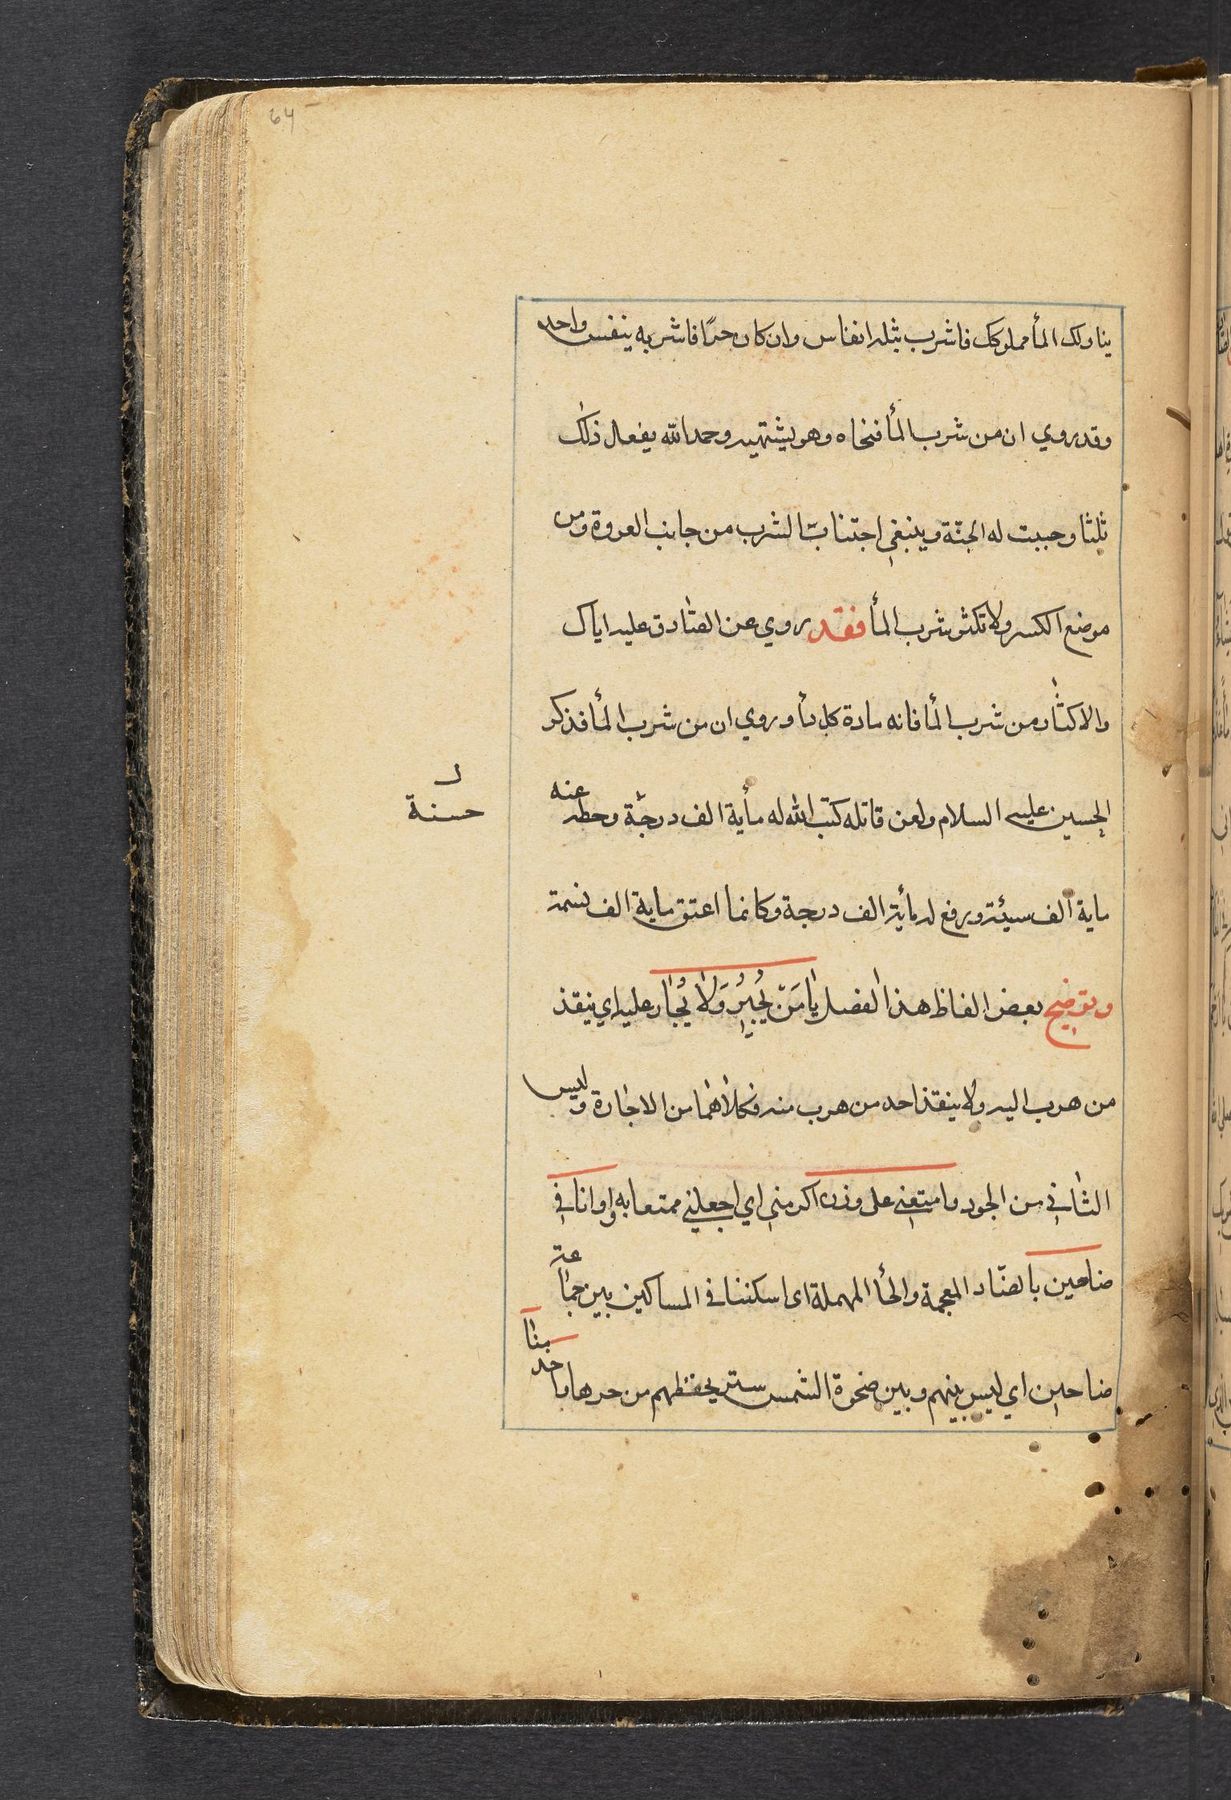 64
يناولك المأ مملوكك فاشرب بثلثه انفاس وان كان حرًا فاشربه بنفس واحد
وقد روي ان من شرب المأ فنحاه وهو يشتهيه وحمد الله يفعل ذلك
ثلثا وجبت له الجنّة وينبغي اجتناب الشرب من جانب العروة ومن
موضع الكسر ولا تكثر شرب المأ فقد روي عن الصّادق عليه اياك
والاكثار من شرب المأ فانه مادة كل دأ وروي ان من شرب المأ فذكر
الحسين عليه السلام ولعن قاتله كتب الله له مأية الف درجة وحط عنه
حسنة
ماية الف سيئة ورفع له مأية الف درجة وكانما اعتق ماية الف نسمة
وتوضيح بعض الفاظ هذا الفصل يَا مَنْ يُجِيْرُ وَلاَ يُجَار عليه اي ينقذ
من هرب اليه ولا ينقذ احد من هرب منه فكلاهما من الاجارة وليس
الثاني من الجود وامتعني على وزن اكرمني اي اجعلني ممتعا به واوانا في
ضاحين بالضّاد المعجمة والحأ المهملة اى اسكننا في المساكين بين جماعة
ضاحين اي ليس بينهم وبين ضحوة الشمس ستر يحفظهم من حرها واخدمنا